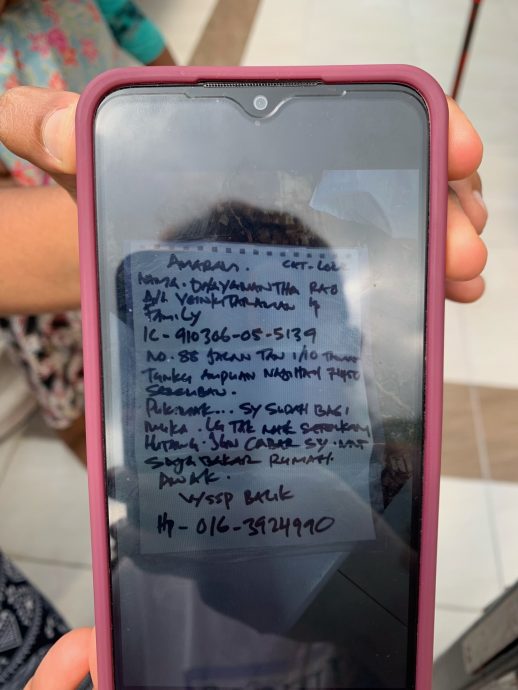 AMARAN.
NAMA: DAYANANTHA RAO
A/L VENKTARAMAN 4
FAMILY
IC - 910306-05-5139
NO. 88 JALAN TAN 1/10 TAMAN
TUNKU AMPUAN NAJIHAH
SEREMBAN.
PUKIMAK... SY SUDAH BAGI
MUKA. LG TAK NAK SETELKAN
HUTANG. JGN CABAR SY. NTI
SAYA BAKAR RUMAH
AWAK.
W/SSP BALIK
Hp - 016-3924990